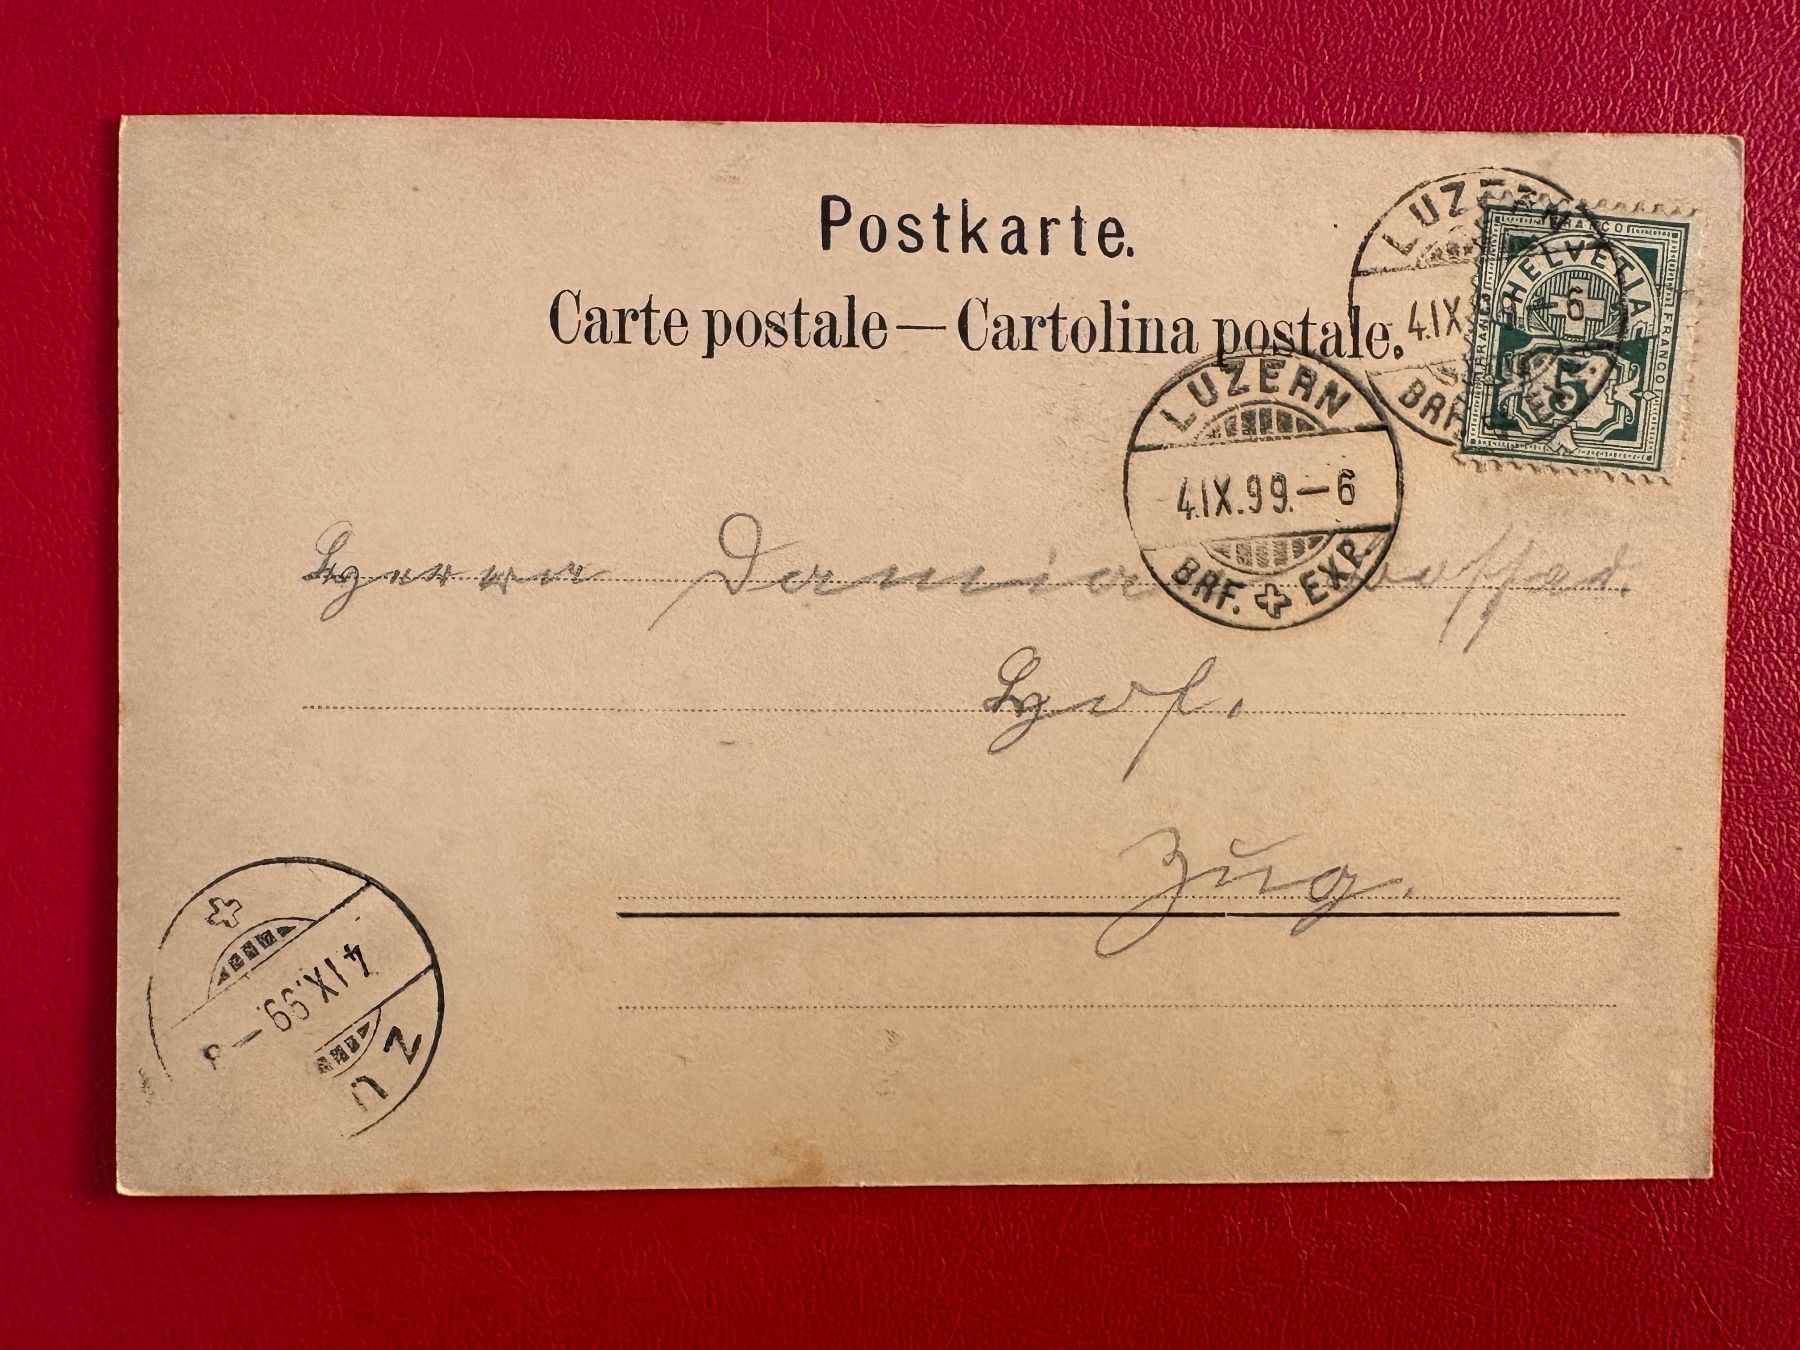 Postkarte.
Carte postale — Cartolina postale.
LUZERN
4.IX
BRF.
FRANCO
HELVETIA
FRANCO
5
LUZERN
4.IX.99.—6
BRF. EXP.
Herrn
Hof.
Zug.
4.IX.99.—8
ZU